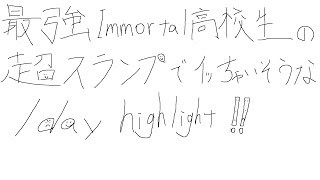 最強Immortal高校生の
超スランプでイッちゃいそうな
1day highlight!!